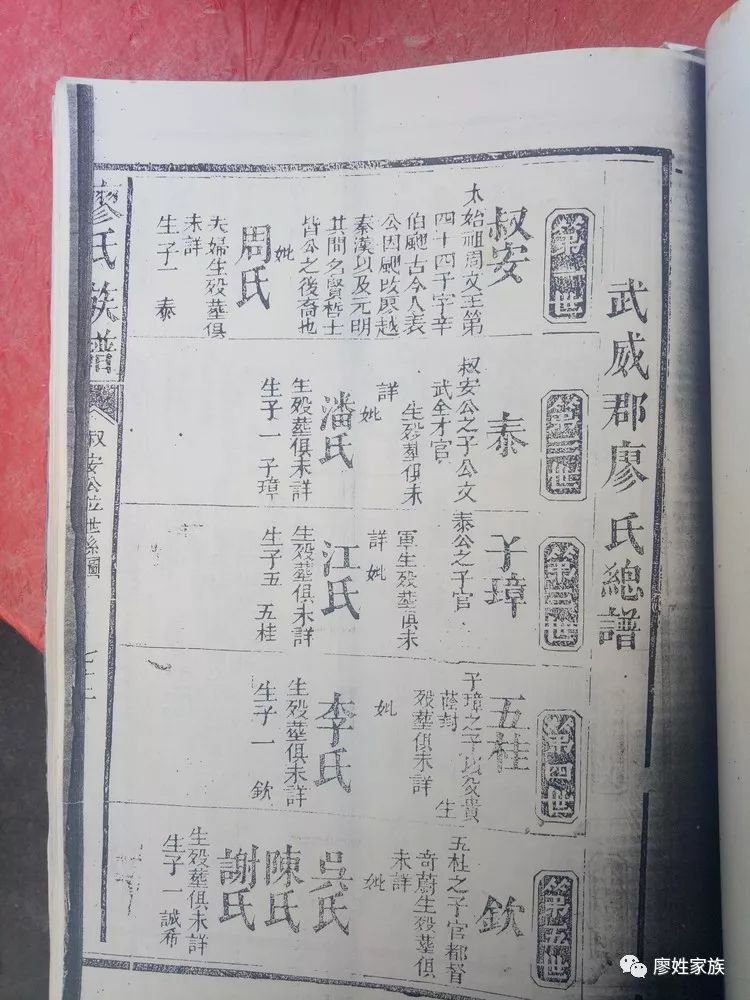 武威郡廖氏總譜
第一世
叔安
太始祖周文王第
四十四千字辛
伯颷古今人表
公因颷改廖越
秦漢以及元明
其間名賢哲士
皆公之後裔也
妣
周氏
夫婦生殁葬俱
未詳
生子一 泰
第二世
泰
叔安公之子公文
武全才官
生殁葬俱未
詳
妣
潘氏
生殁葬俱未詳
生子一 子璋
第三世
子璋
泰公之子官
軍生殁葬俱未
詳 妣
江氏
生殁葬俱未詳
生子五 五桂
第四世
五桂
子璋之子以父貴
蔭封 生
殁葬俱未詳
妣
李氏
生殁葬俱未詳
生子一 欽
第五世
欽
五杜之子官都督
奇蔚生殁葬俱
未詳
妣
吳氏
陳氏
謝氏
生殁葬俱未詳
生子一 誠希
廖氏族譜
叔安公位世系圖
廖姓家族